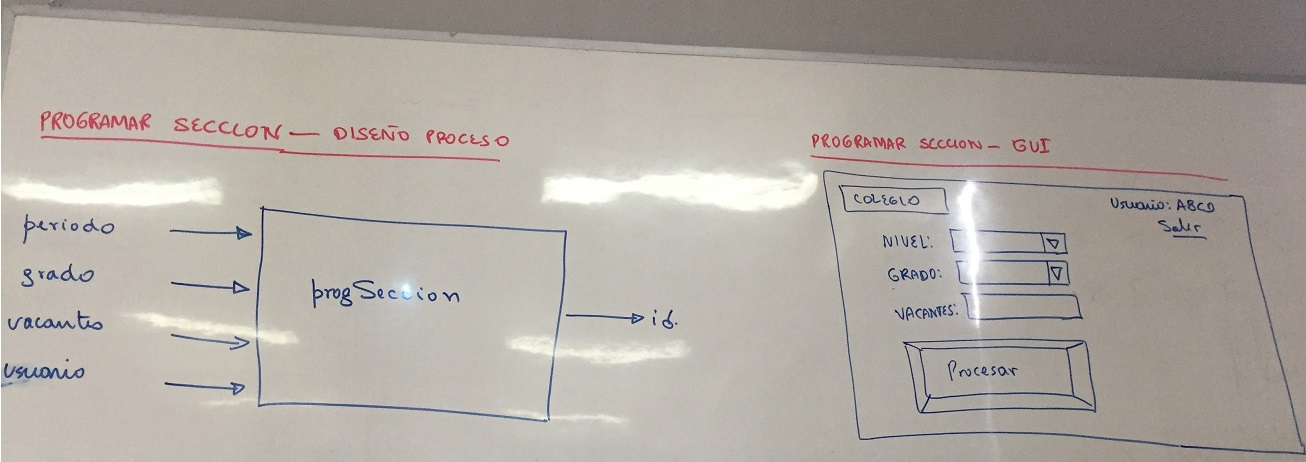 PROGRAMAR SECCION — DISEÑO PROCESO
periodo
grado
vacantes
usuario
progSeccion
id.
PROGRAMAR SECCION - GUI
COLEGIO
Usuario: ABCD
Salir
NIVEL:
GRADO:
VACANTES:
Procesar